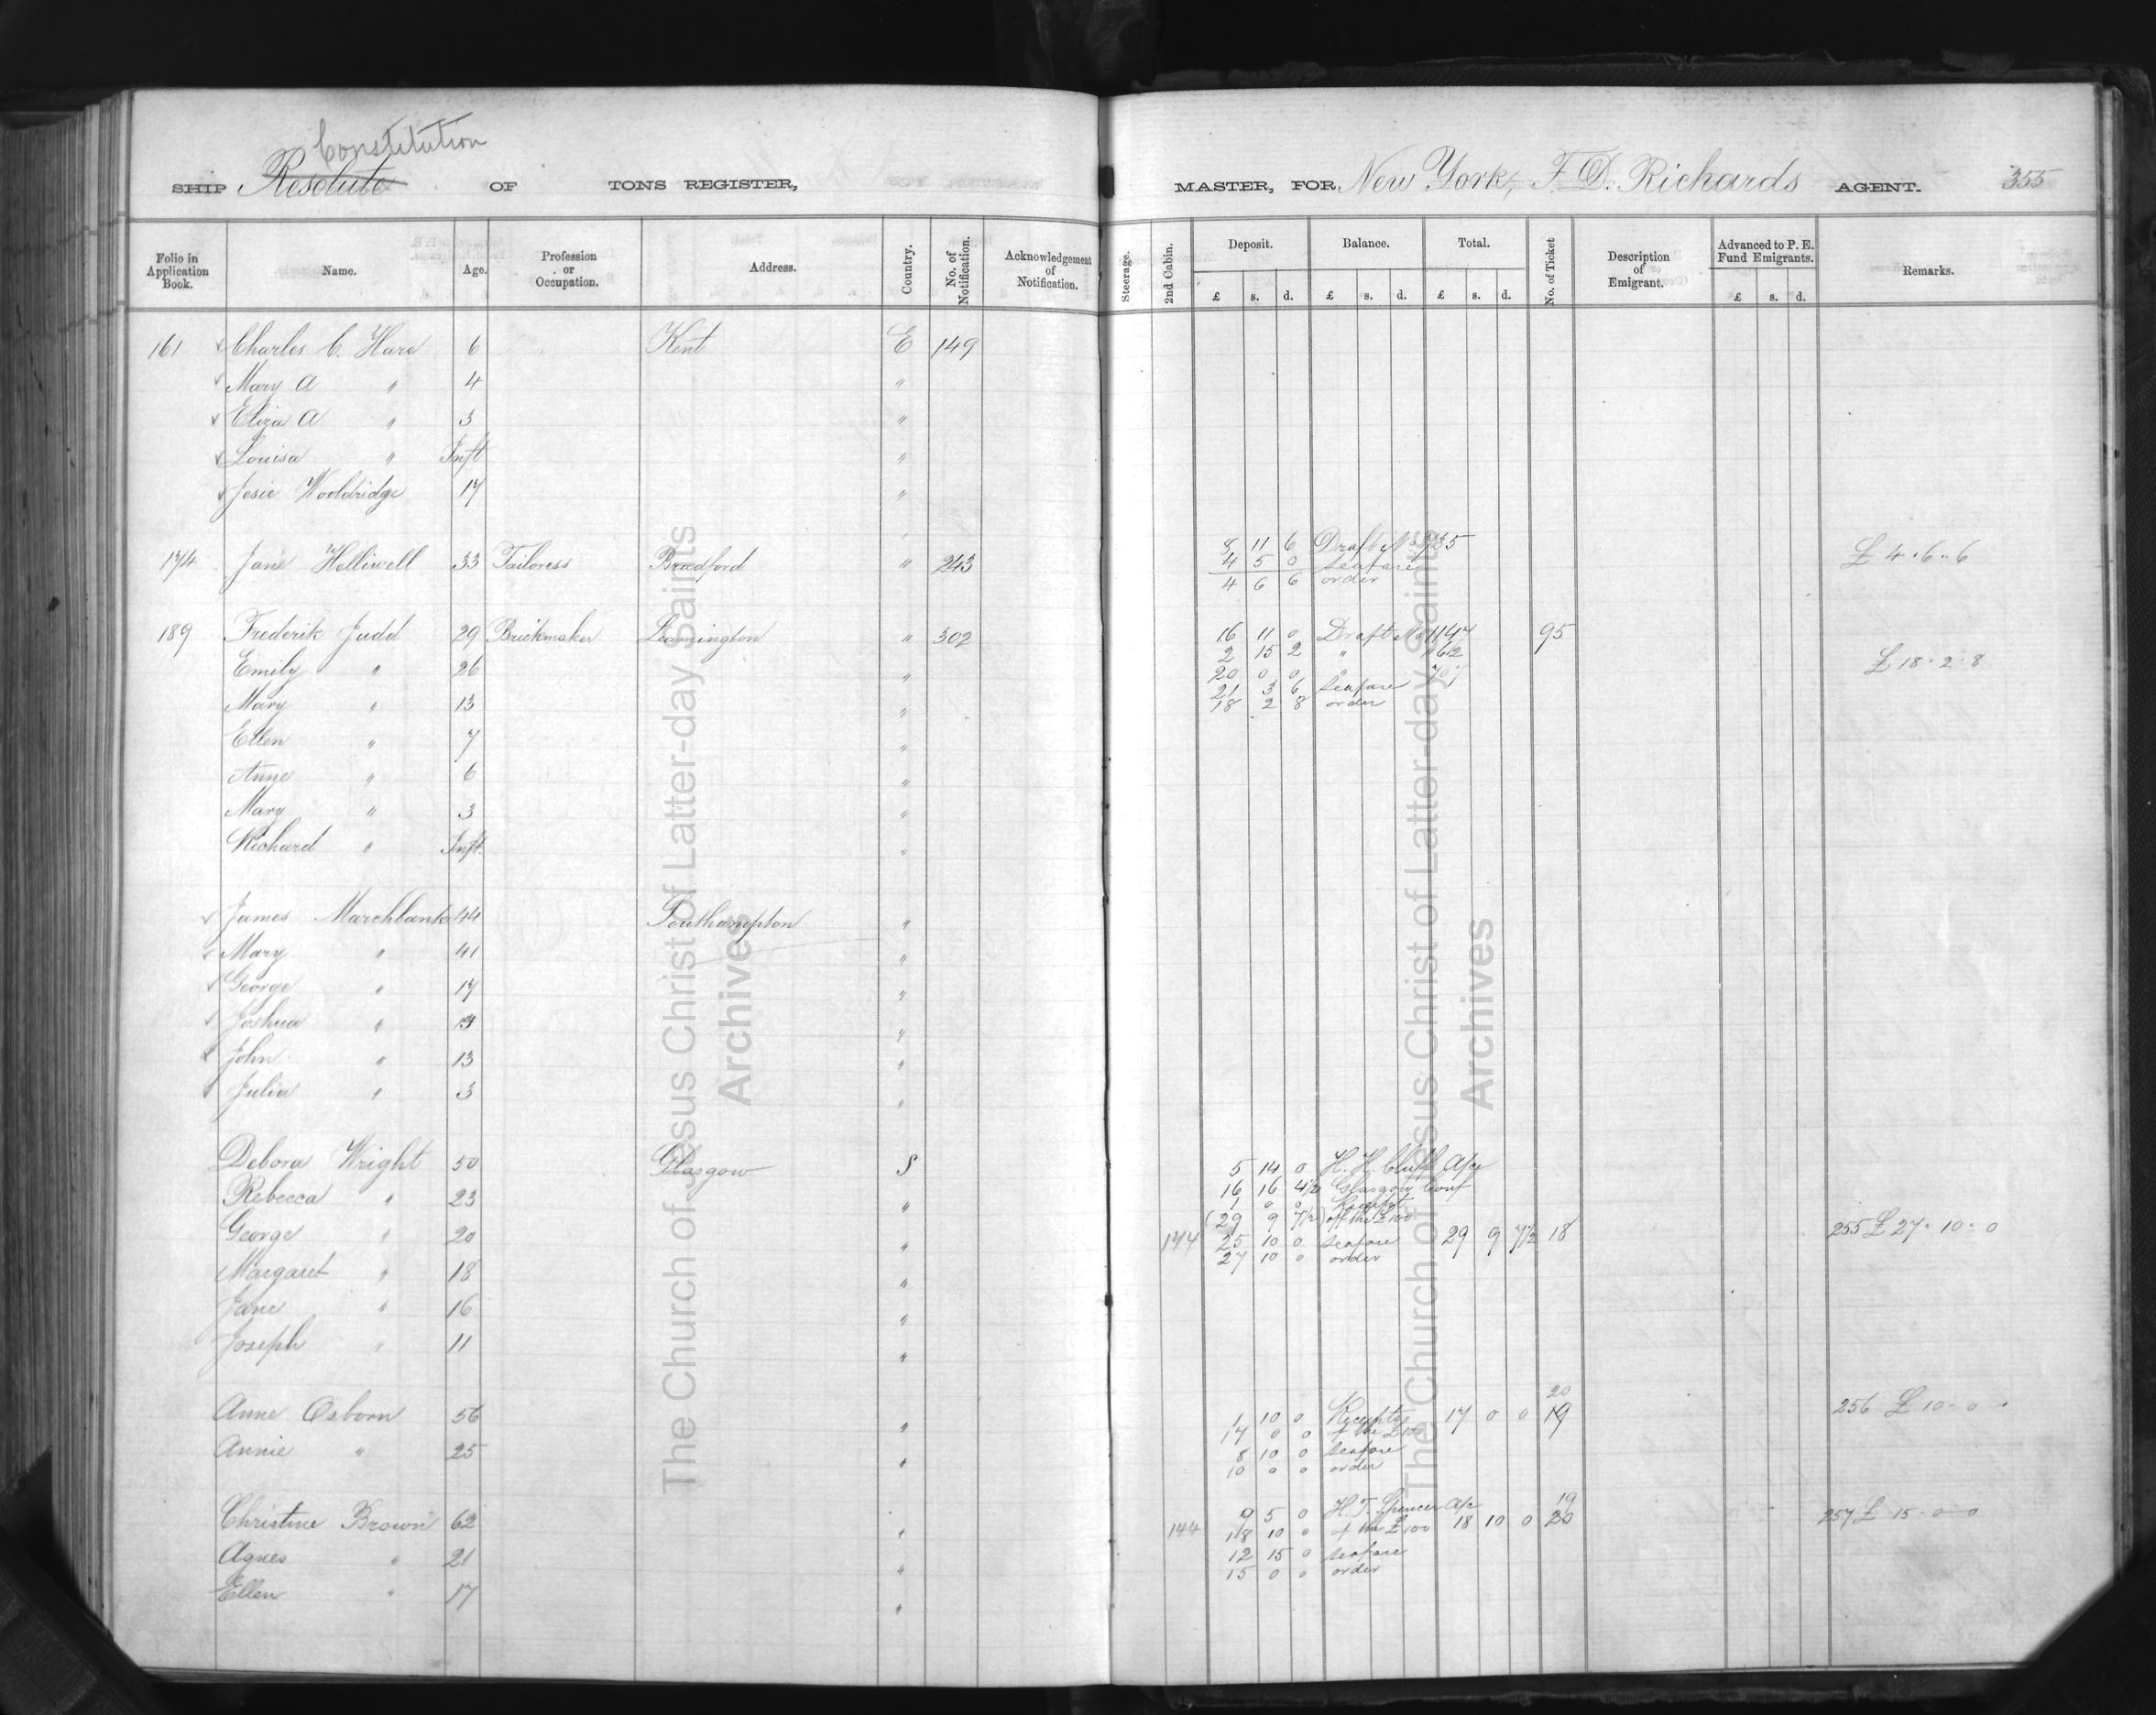 Constitution
SHIP Resolute OF TONS REGISTER, MASTER, FOR New York, F. D. Richards AGENT. 355
Folio in Application Book. Name. Age. Profession or Occupation. Address. Country. No. of Notification. Acknowledgement of Notification. Steerage. 2nd Cabin. Deposit. Balance. Total. No. of Ticket Description of Emigrant. Advanced to P. E. Fund Emigrants. Remarks.
£ s. d. £ s. d. £ s. d. £ s. d.
161 Charles C. Hare 6 Kent E 149
Mary A " 4 "
Eliza A " 3 "
Louisa " Inft "
Josie Wooldridge 17 "
8 11 6 Draft No 735
174 Jane Helliwell 33 Tailoress Bradford " 243 4 5 0 seafare £ 4 " 6 " 6
4 6 6 order
189 Frederik Judd 29 Brickmaker Leamington " 302 16 11 0 Draft No 1147 95
2 15 2 "
Emily " 26 " 20 0 0 " £ 18 " 2 " 8
21 3 6 seafare
Mary " 13 " 18 2 8 order
Ellen " 7 "
Anne " 6 "
Mary " 3 "
Richard " Inft. "
James Marchbanks 44 Southampton "
Mary " 41 "
George " 17 "
Joshua " "
John " 13 "
Julia " 3 "
Debora Wright 50 Glasgow S 5 14 0 H. H. Cluff A/c
Rebecca " 23 " 16 16 4½ Glasgow Conf
1 0 0 Receipt
(29 9 7½) of the £100
George " 20 " 144 25 10 0 seafare 29 9 7½ 18 255 £ 27 " 10 " 0
27 10 0 order
Margaret " 18 "
Jane " 16 "
Joseph " 11 "
20
Anne Osborn 56 " 1 10 0 Receipts 17 0 0 19 256 £ 10 - 0 "
17 0 0 of the £100
Annie " 25 " 8 10 0 seafare
10 0 0 order
19
Christine Brown 62 " 9 5 0 H. T. Spencer A/c
144 18 10 0 of the £100 18 10 0 20 257 £ 15 - 0 - 0
Agnes " 21 " 12 15 0 seafare
15 0 0 order
Ellen " 17 "
The Church of Jesus Christ of Latter-day Saints
Archives
The Church of Jesus Christ of Latter-day Saints
Archives